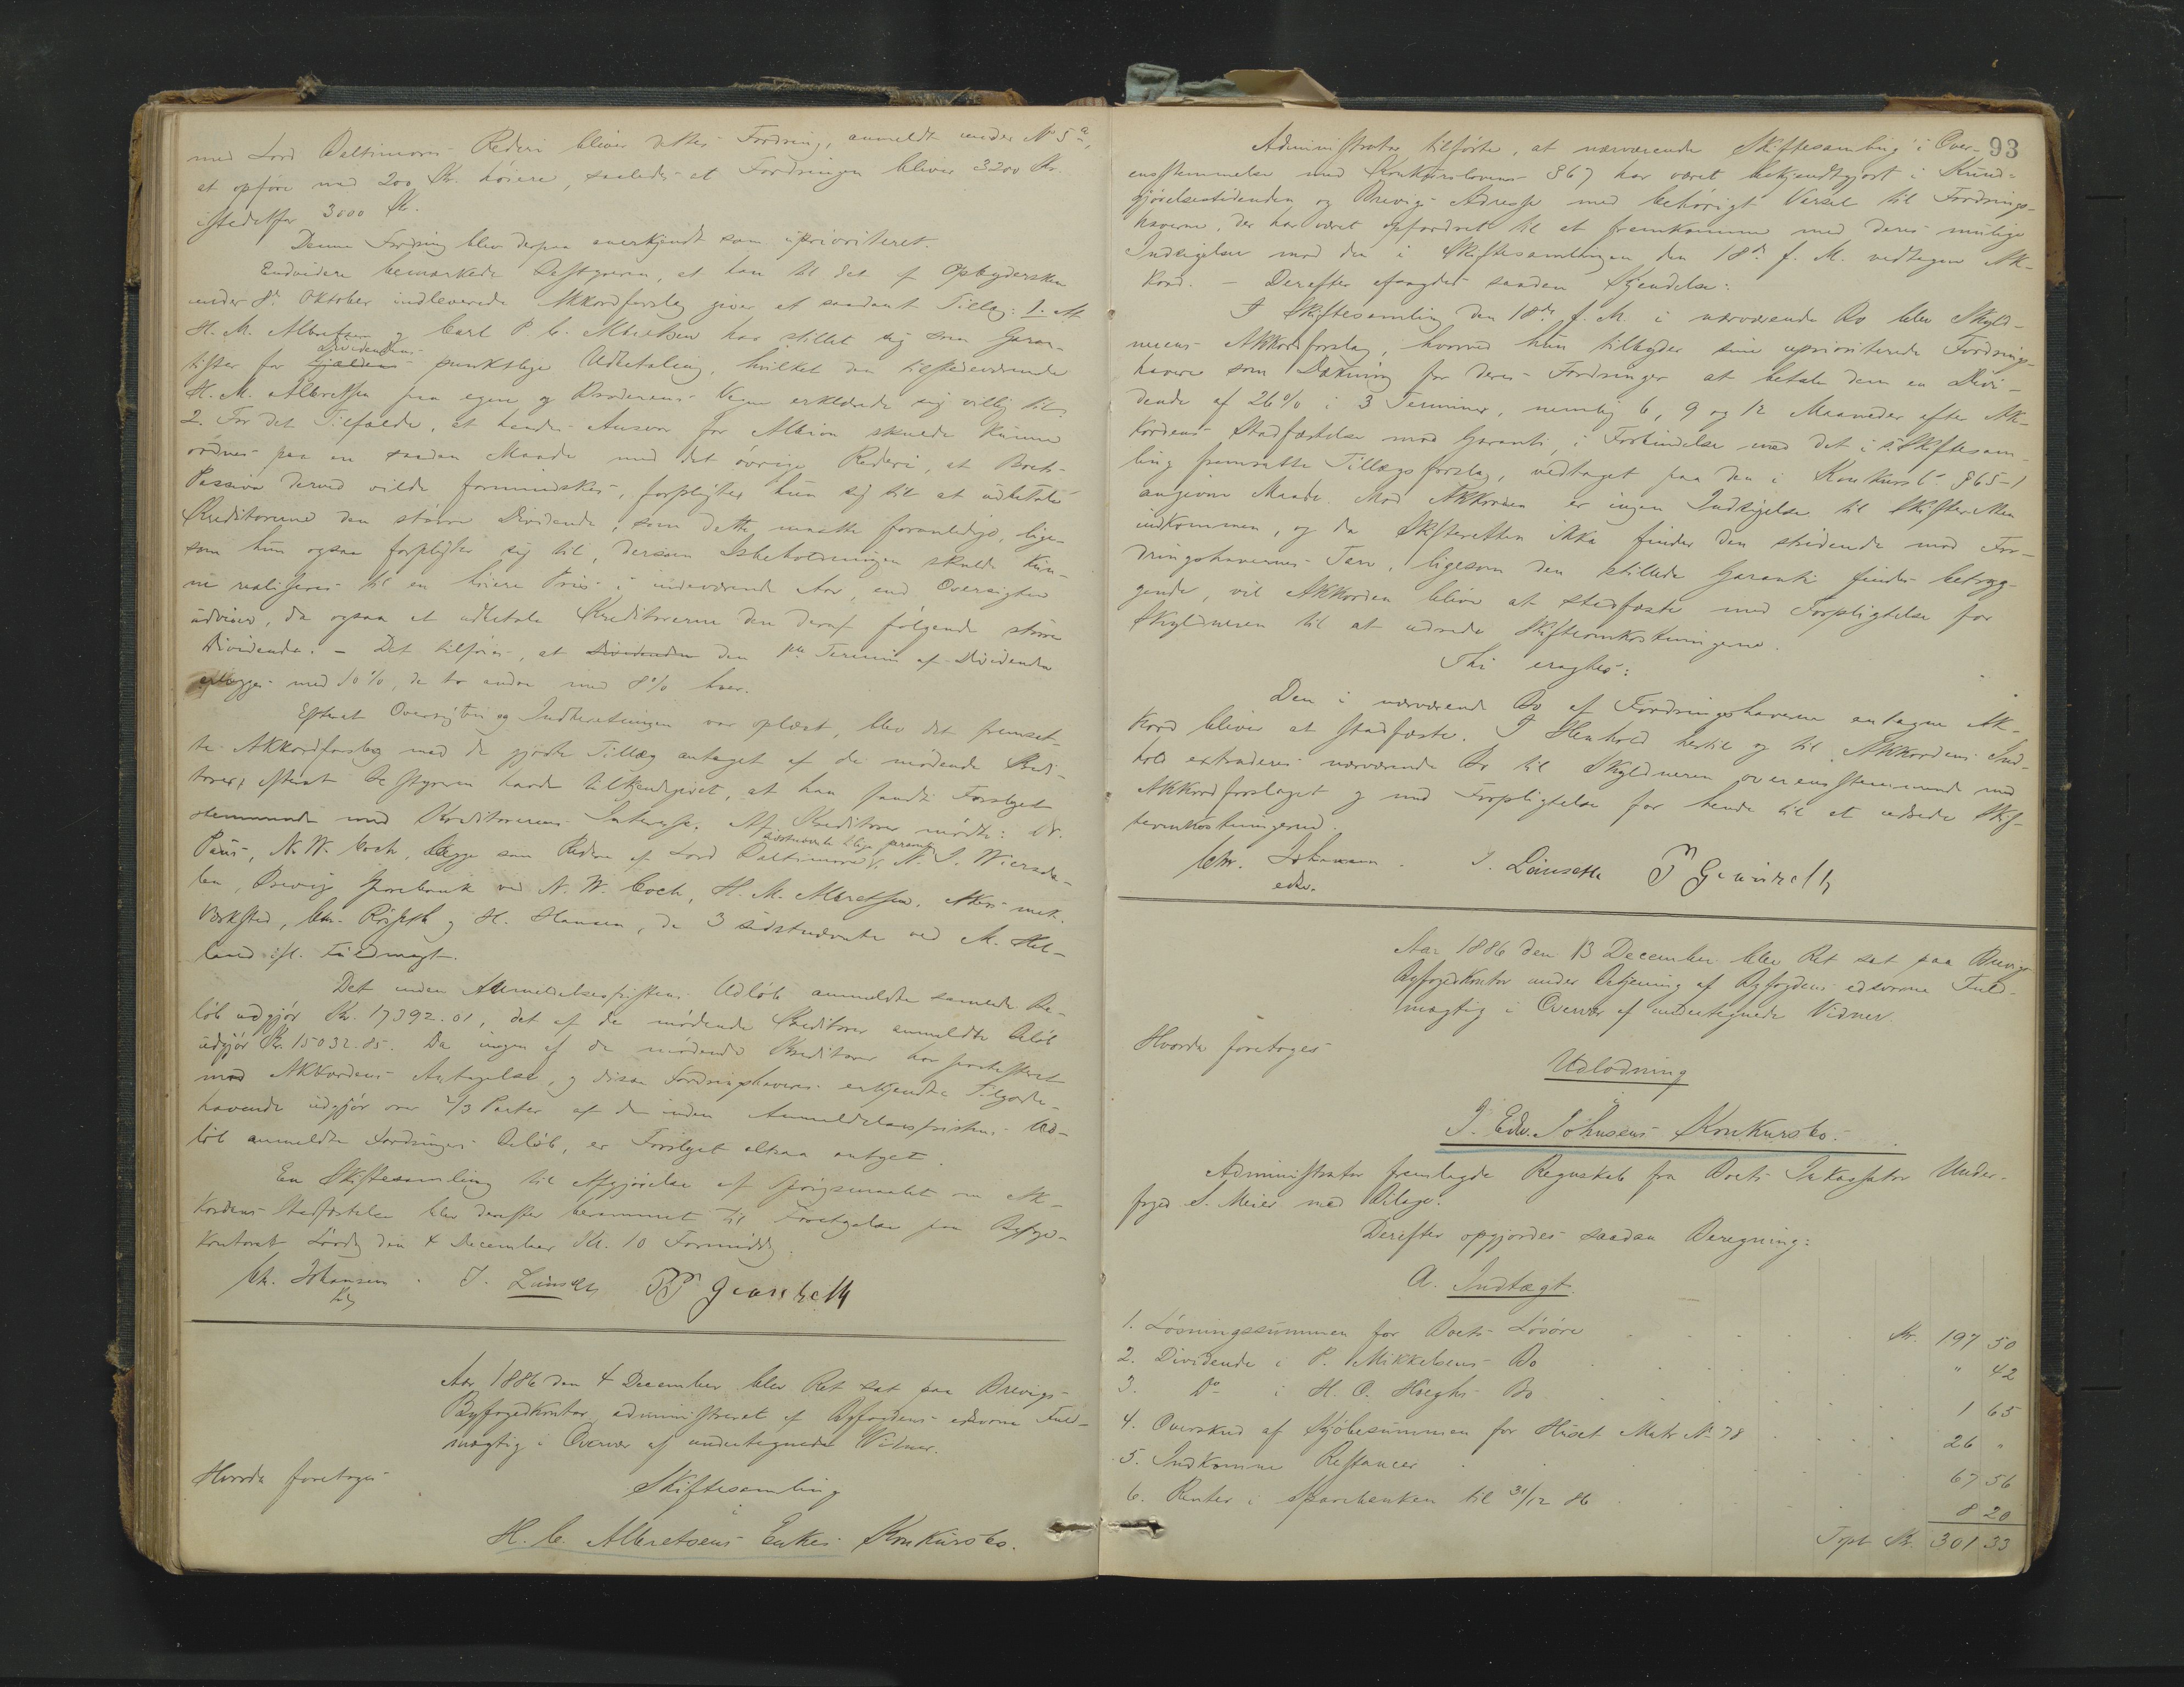 med Lord Baltimores Rederi bliver dettes Fordring, anmeldt under No 5 a,
at opføre med 200 Kr. høiere, saaledes at Fordringen bliver 3200 Kr.
istedetfor 3000 Kr.
Denne Fordring blev derpaa anerkjendt som uprioriteret.
Endvidere bemærkede Bestyreren, at han til det af Opbydersken
under 8de Oktober indleverede Akkordforslag giver et saadant Tillæg: 1. At
H. M. Albretsen og Carl P. C. Albretsen har stillet sig som Garan-
tister for Dividendens punktlige Udbetaling, hvilket den tilstedeværende
H. M. Albretsen paa egne og Broderens Vegne erklærede sig villig til
2. For det Tilfælde, at hendes Ansvar for Albion skulde kunne
ordnes paa en saadan Maade med det øvrige Rederi, at Boets
Passiva derved vilde formindskes, forpligter hun sig til at udbetale
Kreditorerne den større Dividende, som dette maatte foranledige, lige-
som hun ogsaa forpligter sig til, dersom Isbeholdningen skulde kun-
ne realiseres til en høiere Pris i indeværende Aar, end Oversigten
udviser, da ogsaa at udbetale Kreditorerne den deraf følgende større
Dividende. – Det tilføies, at Dividenden den 1ste Termin af Dividenden
erlægges med 10 %, de to andre med 8 % hver.
Efterat Oversigten og Indberetningen var oplæst, blev det fremsat-
te Akkordforslag med de gjorte Tillæg antaget af de mødende Kredi-
torer, efterat Bestyreren havde tilkjendegivet, at han fandt Forslaget
stemmende med Kreditorernes Interesse. Af Kreditorer mødte: Chr.
Paus, N. W. Coch, begge som Redere af Lord Baltimore, N. J. Wiersda-
len, Brevig Sparebank ved N. W. Coch, H. M. Albretsen, Akers mek.
Værksted, Chr. Røsseth og H. Hansen, de 3 sidstnævnte ved M. Hel-
land ifl. Fuldmagt.
Det inden Anmeldelsesfristens Udløb anmeldte samlede Be-
løb udgjør Kr. 17392.01, det af de mødende Kreditorer anmeldte Beløb
udgjør Kr. 15032.85. Da ingen af de mødende Kreditorer har protesteret
mod Akkordens Antagelse, og disse Fordringshaveres erkjendte Tilgode-
havende udgjør over 2/3 Parter af de inden Anmeldelsesfristens Ud-
løb anmeldte Fordringers Beløb, er Forslaget altsaa antaget.
En Skiftesamling til Afgjørelse af Spørgsmaalet om Ak-
kordens Stadfæstelse blev derefter berammet til Foretagelse paa Byfoged-
kontoret Lørdag den 4 December Kl. 10 Formiddag.
Chr. Johansen
Aar 1886 den 4 December blev Ret sat paa Brevigs
Byfogedkontor, administreret af Byfogdens edsvorne Fuld-
mægtig i Overvær af undertegnede Vidner.
Hvorda foretoges
Skiftesamling
i
H. C. Albretsens Enkes Konkursbo.
93
Administrator tilførte, at nærværende Skiftesamling i Over-
ensstemmelse med Konkurslovens § 67 har været bekjendtgjort i Kund-
gjørelsestidenden og Brevigs Adresse med behørigt Varsel til Fordrings-
haverne, der har været opfordret til at fremkomme med deres mulige
Indsigelser mod den i Skiftesamlingen den 18de f. M. vedtagne Ak-
kord. – Derefter afsagdes saadan Kjendelse:
I Skiftesamling den 18de f. M. i nærværende Bo blev Skyld-
nerens Akkordforslag, hvorved hun tilbyder sine uprioriterede Fordrings-
havere som Dækning for deres Fordringer at betale dem en Divi-
dende af 26 % i 3 Terminer, nemlig 6, 9 og 12 Maaneder efter Ak-
kordens Stadfæstelse mod Garanti, i Forbindelse med det i s. Skiftesam-
ling fremsatte Tillægsforslag, vedtaget paa den i Konkursl. § 65-1
angivne Maade. Mod Akkorden er ingen Indsigelse til Skifteretten
indkommen, og da Skifteretten ikke finder den stridende mod For-
dringshavernes Tarv, ligesom den stillede Garanti findes betryg-
gende, vil Akkorden blive at stadfæste med Forpligtelse for
Skyldneren til at udrede Skifteomkostningerne.
Thi eragtes:
Den i nærværende Bo af Fordringshaverne antagne Ak-
kord bliver at stadfæste. I Henhold hertil og til Akkordens Ind-
hold extraderes nærværende Bo til Skyldneren overensstemmende med
Akkordforslaget og med Forpligtelse for hende til at udrede Skif-
teomkostningerne.
Chr. Johansen
edsv.
Aar 1886 den 13 December blev Ret sat paa Brevigs
Byfogedkontor under Betjening af Byfogdens edsvorne Fuld-
mægtig i Overvær af undertegnede Vidner.
Hvorda foretoges
Udlodning
i
J. Edv. Johnsens Konkursbo.
Administrator fremlagde Regnskab fra Boets Inkassator Under-
foged S. Meier med Bilage.
Derefter opgjordes saadan Beregning:
A. Indtægt.
1. Løsningssummen for Boets Løsøre Kr. 197 50
2. Dividende i P. Mikkelsens Bo " 42
3. Do i H. O. Høeghs Bo 1 65
4. Overskud af Kjøbesummen for Huset Matr No 78 26 "
5. Indkomne Restancer 67 56
6. Renter i Sparebanken til 31/12 86 8 20
Tspt Kr. 301 33